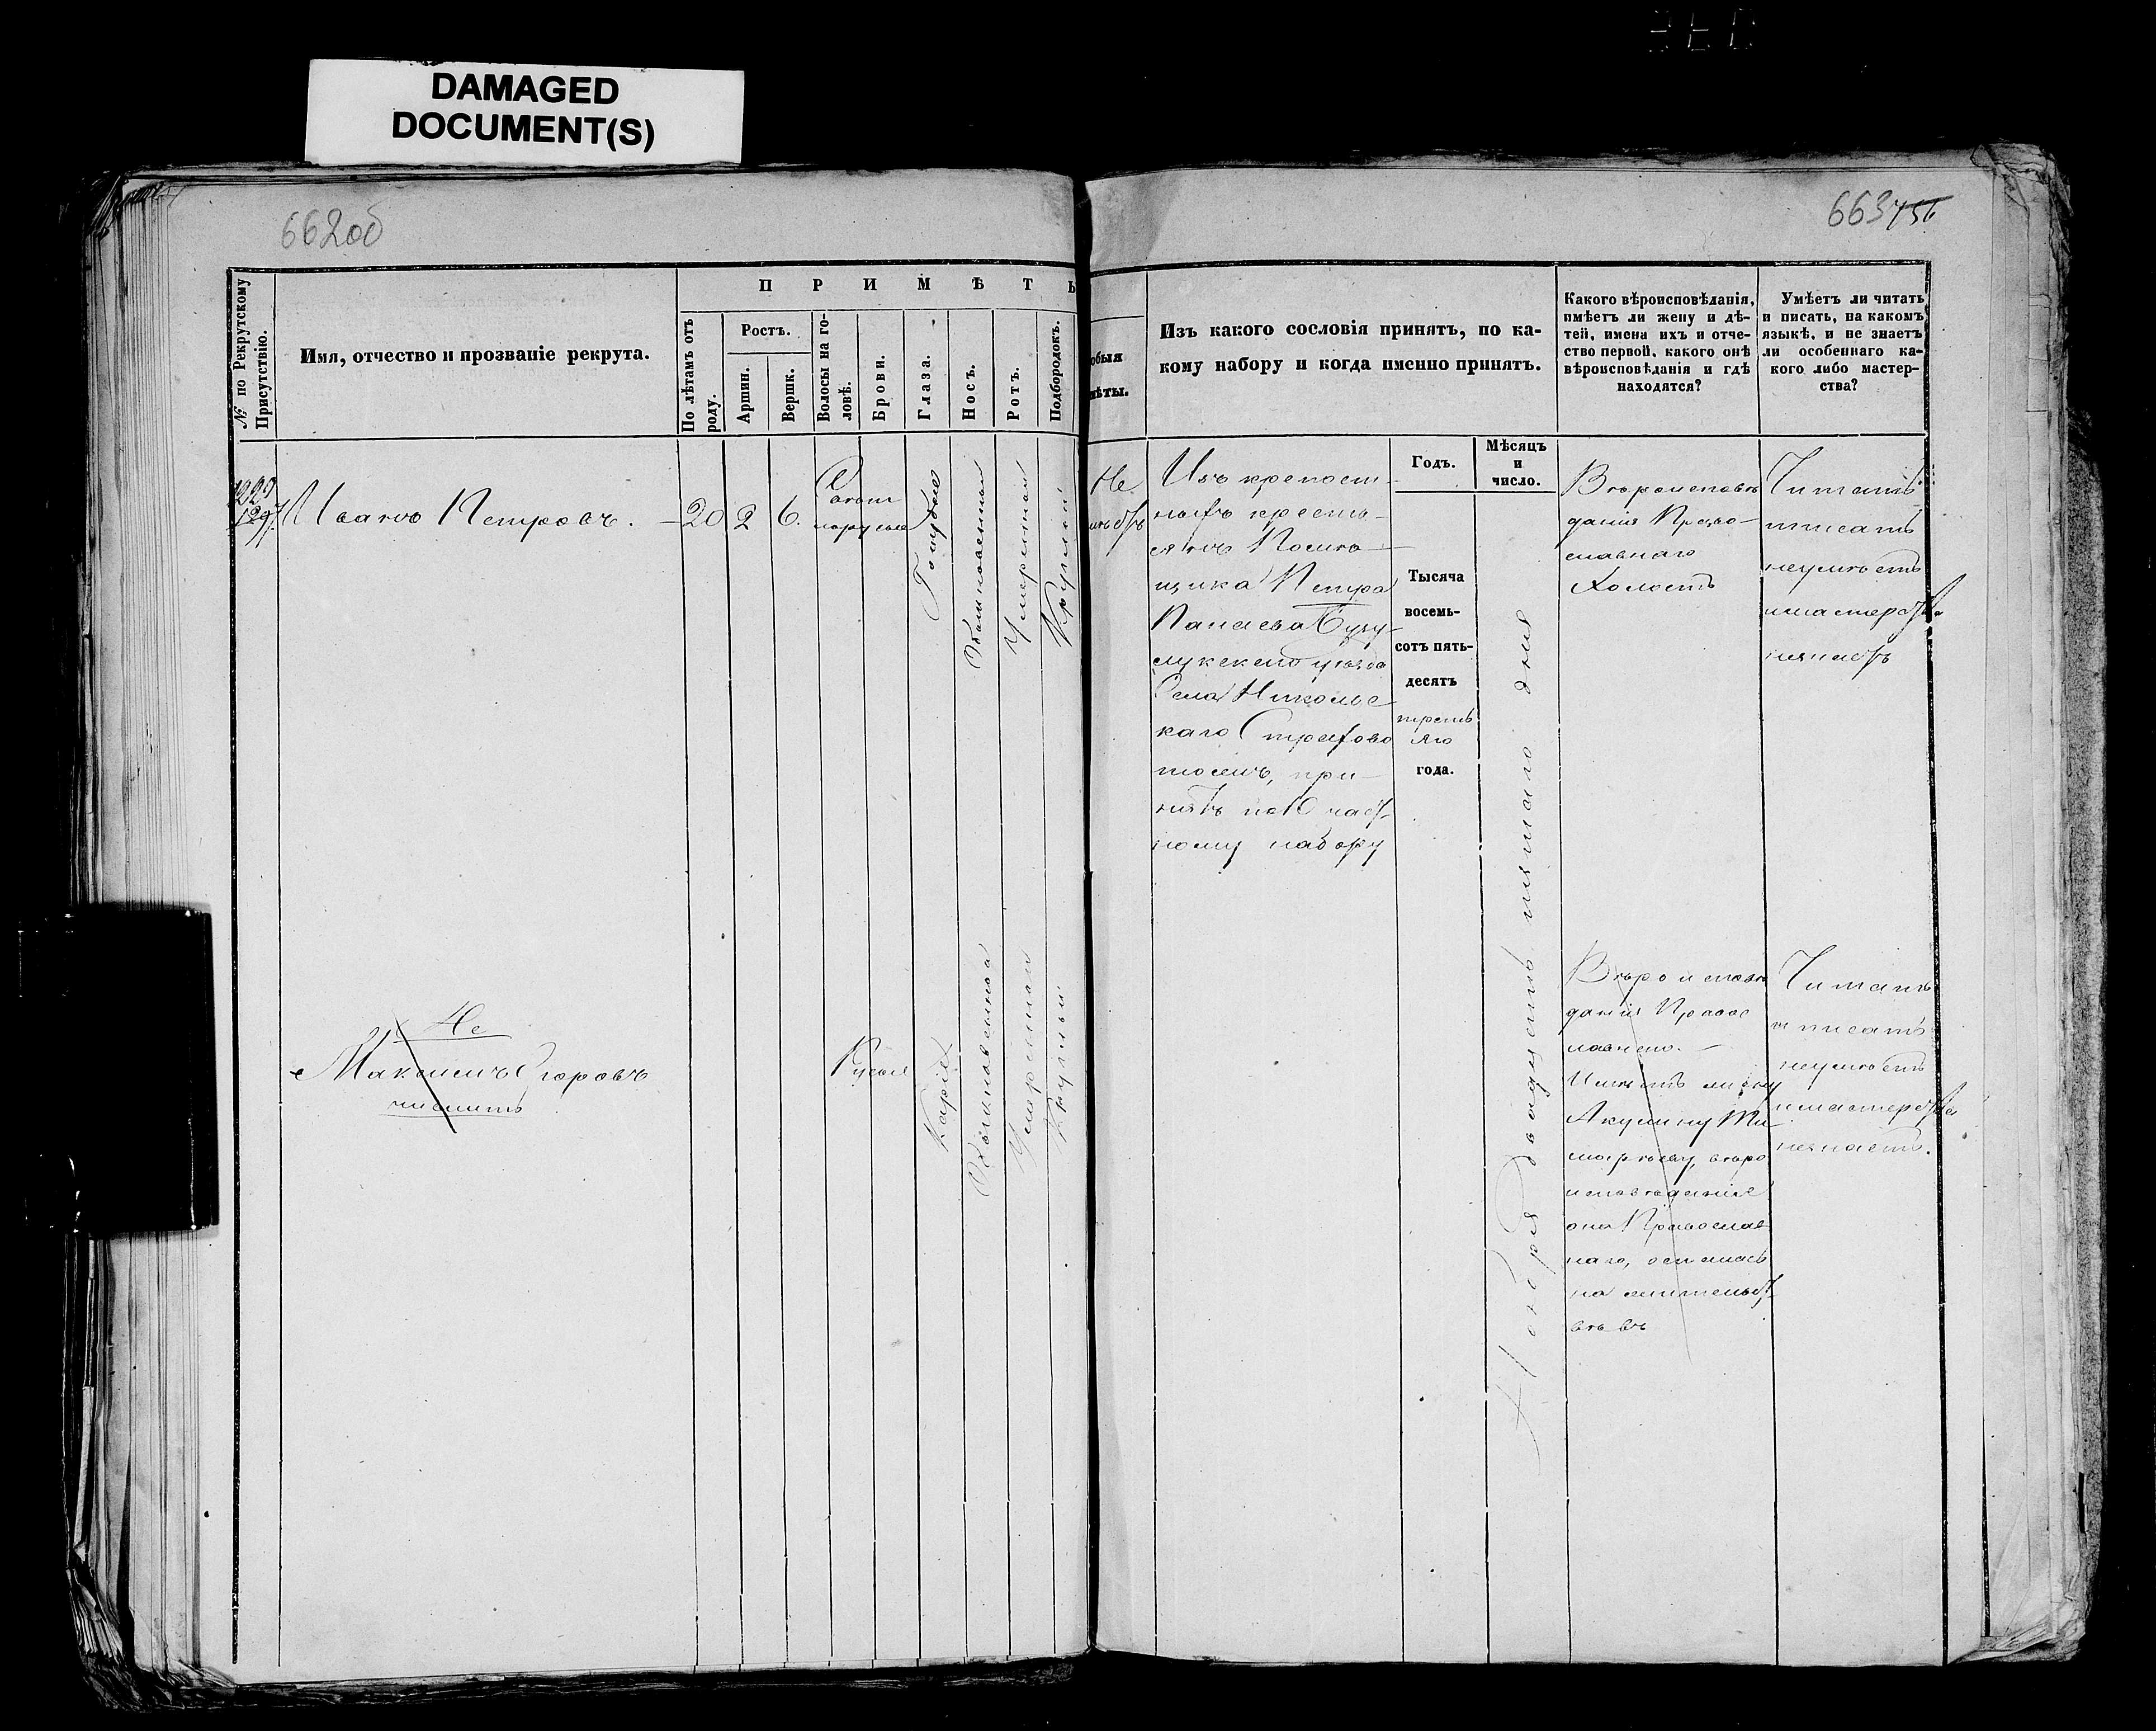 DAMAGED
DOCUMENT(S)
662об
663
№ по Рекрутскому Присутствію.
Имя, отчество и прозваніе рекрута.
П Р И М Ѣ Т Ы
По лѣтамъ отъ роду.
Ростъ.
Аршин.
Вершк.
Волосы на головѣ.
Брови.
Глаза.
Носъ.
Ротъ.
Подбородокъ.
обыя
мѣты.
Изъ какого сословія принятъ, по ка-
кому набору и когда именно принятъ.
Какого вѣроисповѣданія,
имѣетъ ли жену и дѣ-
тей, имена ихъ и отче-
ство первой, какого онѣ
вѣроисповѣданія и гдѣ
находятся?
Умѣетъ ли читать
и писать, на какомъ
языкѣ, и не знаетъ
ли особеннаго ка-
кого либо мастер-
ства?
Годъ.
Мѣсяцъ
и
число.
Иванъ Петровъ.
20
2
6.
Голубые
Обыкновенный
Умеренный
Круглый
Не
Изъ крепост-
ныхъ кресть-
янъ Помѣ-
щика Петра
Бугу-
Села Николь-
каго
при-
нятъ по
ному набору
Тысяча
восемь-
сотъ пять-
десятъ
третья
яго
года.
Ноября двадцать пятаго дня
Вѣроисповѣ
данія Право-
славнаго
Холостъ
Читать
писать
неумѣетъ
имастерства
незнаетъ
Не
Максимъ Егоровъ
числить
Русыя
Каріе
Обыкновенной
Умеренной
Круглый
Вѣроисповѣ
данія Правос
лавнаго.
Имѣетъ жену
Акулину Ти
вѣро
исповѣданія
она Православ
наго, осталась
на жительст
вѣ въ
Читать
и писать
неумѣетъ
имастерства
незнаетъ.